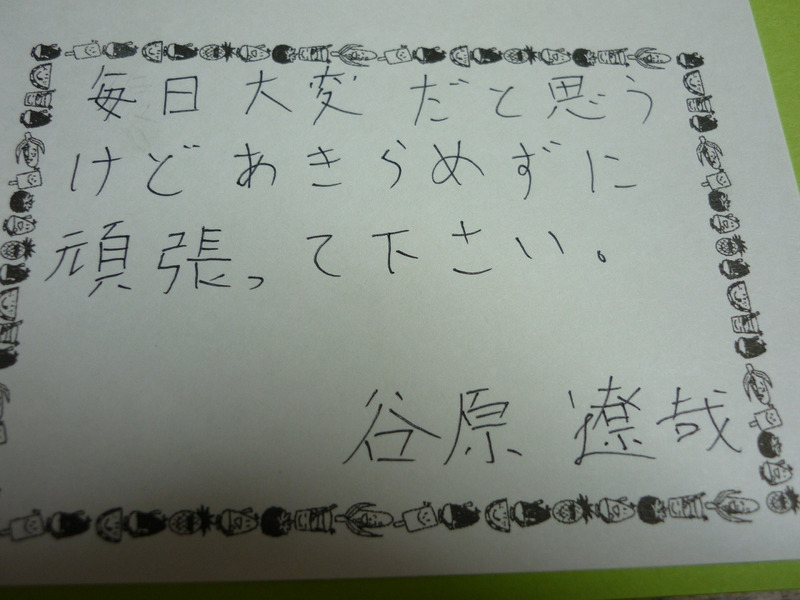 毎日大変だと思う
けどあきらめずに
頑張って下さい。
谷原 遼哉